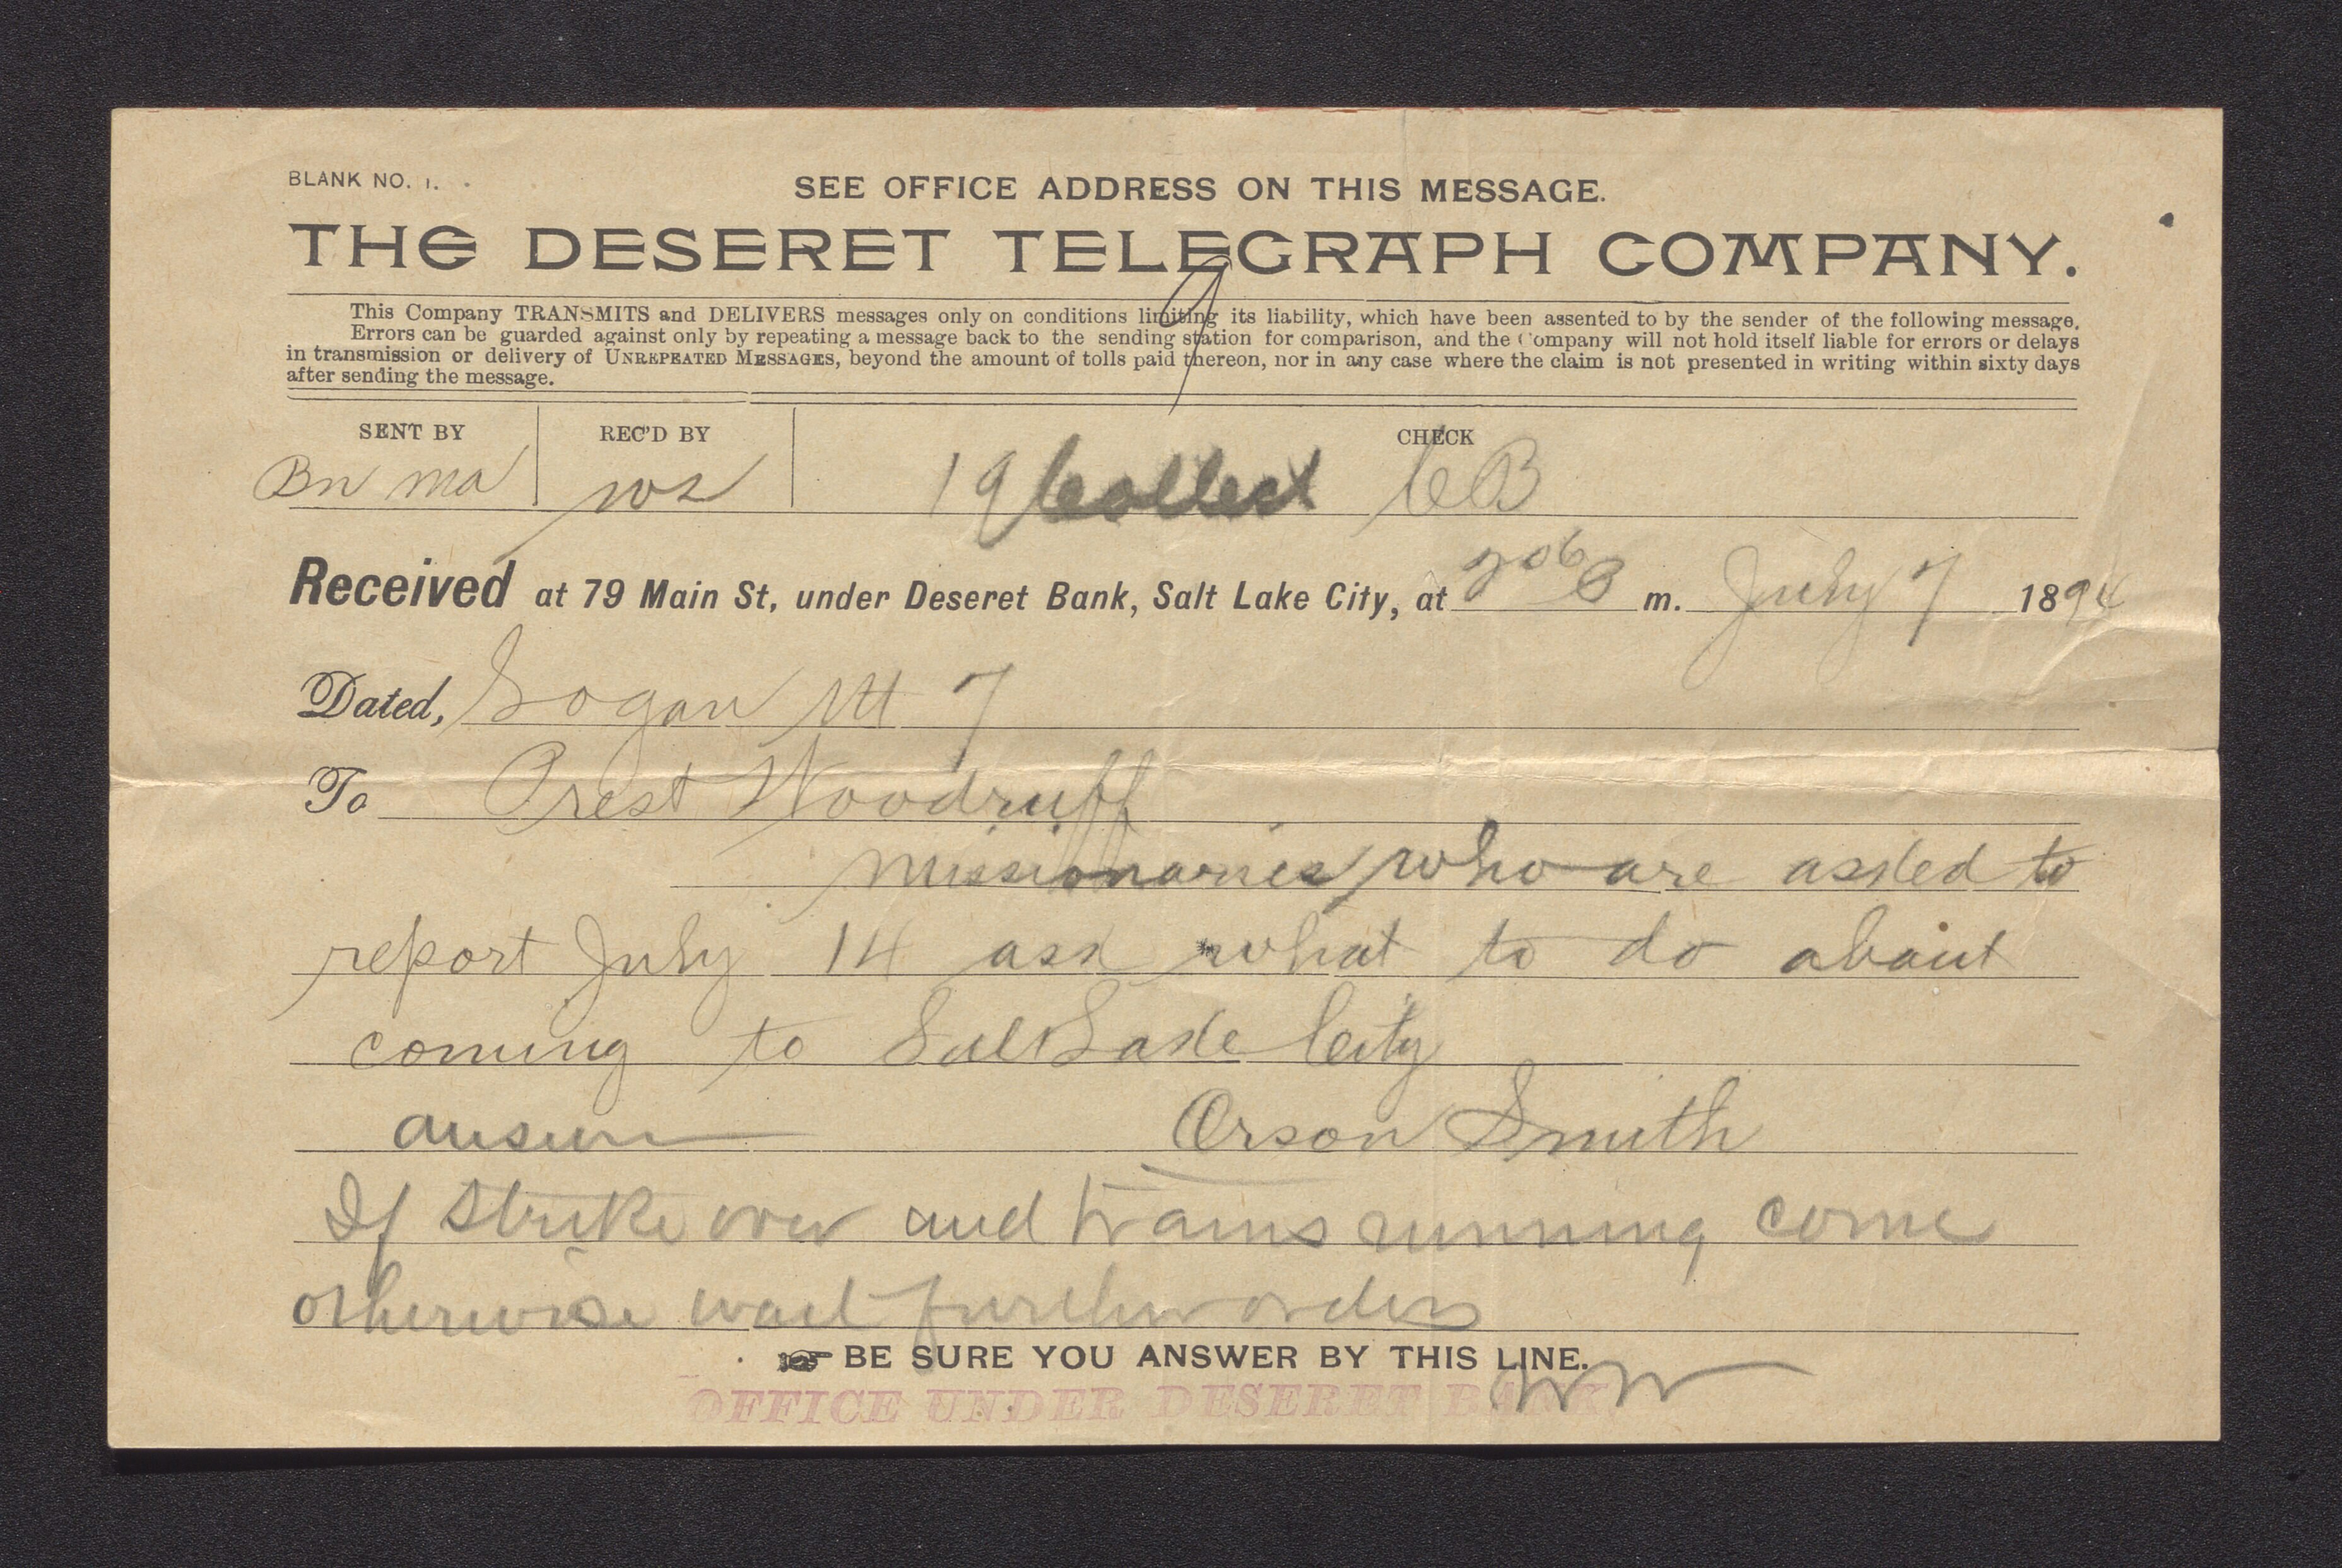 BLANK NO. 1.
SEE OFFICE ADDRESS ON THIS MESSAGE.
THE DESERET TELEGRAPH COMPANY.
This Company TRANSMITS and DELIVERS messages only on conditions limiting its liability, which have been assented to by the sender of the following message.
Errors can be guarded against only by repeating a message back to the sending station for comparison, and the Company will not hold itself liable for errors or delays
in transmission or delivery of UNREPEATED MESSAGES, beyond the amount of tolls paid thereon, nor in any case where the claim is not presented in writing within sixty days
after sending the message.
SENT BY REC'D BY CHECK
Bn ma 19 Collect
Received at 79 Main St, under Deseret Bank, Salt Lake City, at 206 m. July 7 1894
Dated, Logan Ut 7
To Prest Woodruff
Missionaries who are asked to
report July 14 ask what to do about
coming to Salt Lake City
answer Orson Smith
If Strike over and trains running come
otherwise wait further orders
BE SURE YOU ANSWER BY THIS LINE.
WW
OFFICE UNDER DESERET BANK.